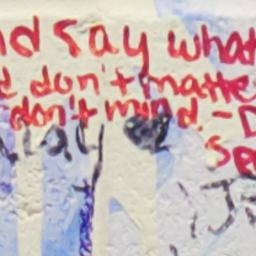 nd say what
d don't matte
don't mind. - D
Se